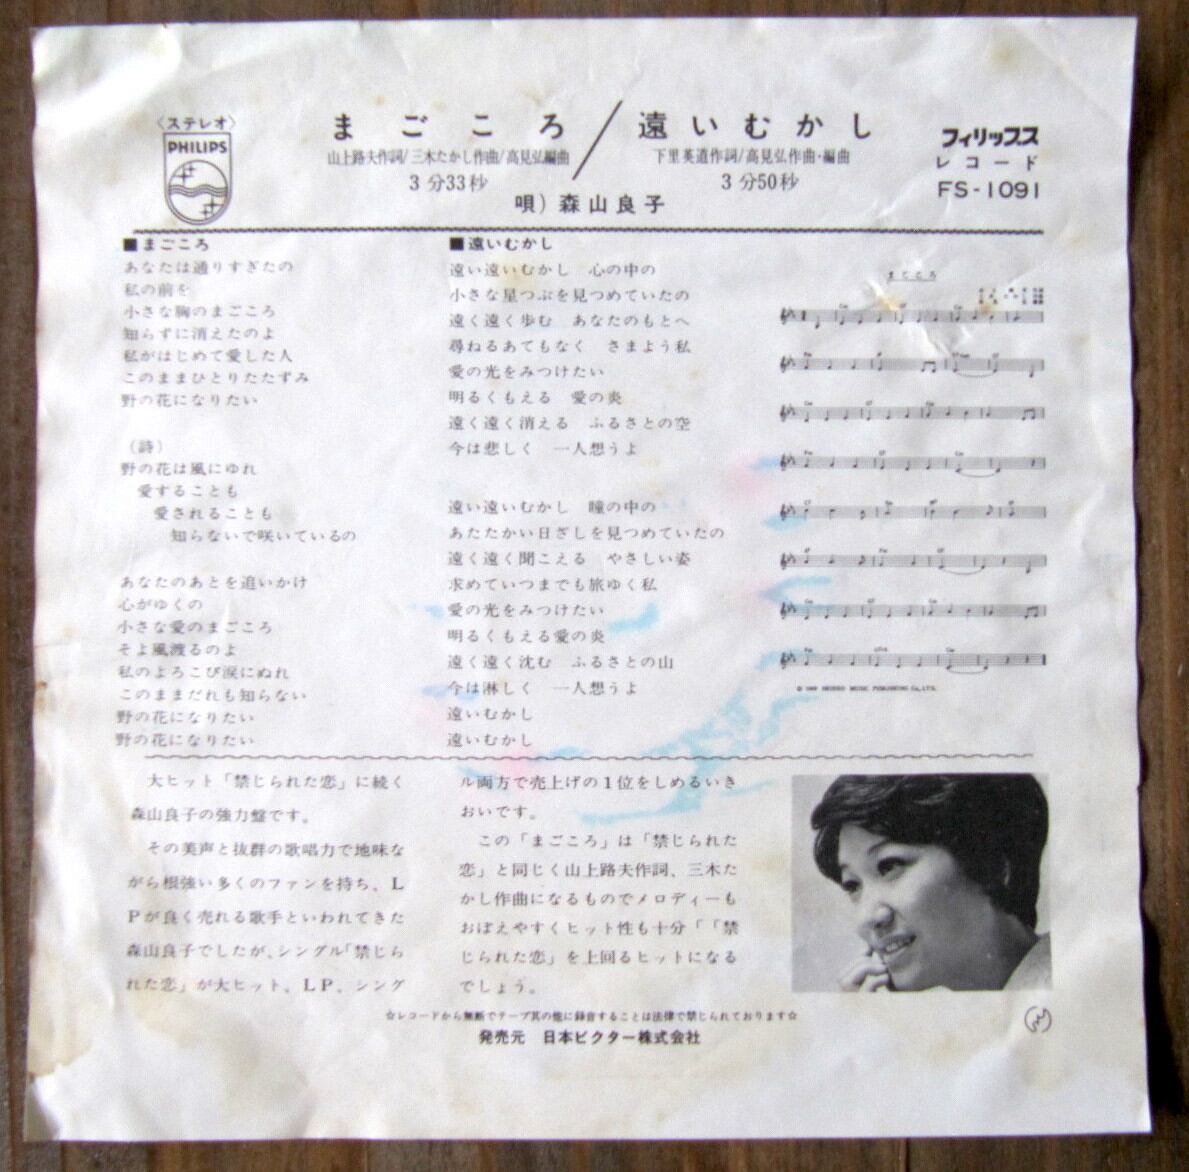 〈ステレオ〉
PHILIPS
まごころ／遠いむかし
山上路夫作詞/三木たかし作曲/高見弘編曲
3分33秒
下里英道作詞/高見弘作曲・編曲
3分50秒
唄）森山良子
フィリップス
レコード
FS-1091
■まごころ
あなたは通りすぎたの
私の前を
小さな胸のまごころ
知らずに消えたのよ
私がはじめて愛した人
このままひとりたたずみ
野の花になりたい
（詩）
野の花は風にゆれ
愛することも
愛されることも
知らないで咲いているの
あなたのあとを追いかけ
心がゆくの
小さな愛のまごころ
そよ風渡るのよ
私のよろこび涙にぬれ
このままだれも知らない
野の花になりたい
野の花になりたい
■遠いむかし
遠い遠いむかし 心の中の
小さな星つぶを見つめていたの
遠く遠く歩む あなたのもとへ
尋ねるあてもなく さまよう私
愛の光をみつけたい
明るくもえる 愛の炎
遠く遠く消える ふるさとの空
今は悲しく 一人想うよ
遠い遠いむかし 瞳の中の
あたたかい日ざしを見つめていたの
遠く遠く聞こえる やさしい姿
求めていつまでも旅ゆく私
愛の光をみつけたい
明るくもえる愛の炎
遠く遠く沈む ふるさとの山
今は淋しく 一人想うよ
遠いむかし
遠いむかし
まごころ
大ヒット「禁じられた恋」に続く
森山良子の強力盤です。
その美声と抜群の歌唱力で地味な
がら根強い多くのファンを持ち、L
Pが良く売れる歌手といわれてきた
森山良子でしたが、シングル「禁じら
れた恋」が大ヒット、LP、シング
ル両方で売上げの1位をしめるいき
おいです。
この「まごころ」は「禁じられた
恋」と同じく山上路夫作詞、三木た
かし作曲になるものでメロディーも
おぼえやすくヒット性も十分「「禁
じられた恋」を上回るヒットになる
でしょう。
☆レコードから無断でテープ其の他に録音することは法律で禁じられております☆
発売元 日本ビクター株式会社